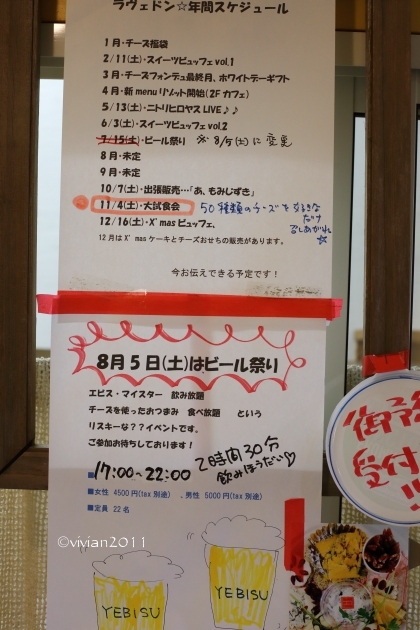 ラヴェドン☆年間スケジュール
1月・チーズ福袋
2/11(土)・スイーツビュッフェ vol.1
3月・チーズフォンデュ最終月、ホワイトデーギフト
4月・新menuリゾット開始(2Fカフェ)
5/13(土)・ニトリヒロヤス LIVE♪♪
6/3(土)・スイーツビュッフェ vol.2
7/15(土)・ビール祭り ※8/5(土)に変更
8月・未定
9月・未定
10/7(土)・出張販売…「あ、もみじずき」
11/4(土)・大試食会 50種類のチーズを好きな
だけ
召しあがれ☆
12/16(土)・X'masビュッフェ、
12月はX'masケーキとチーズおせちの販売があります。
今お伝えできる予定です!
8月5日(土)はビール祭り
エビス・マイスター 飲み放題
チーズを使ったおつまみ 食べ放題 という
リスキーな??イベントです。
ご参加お待ちしております!
■17:00~22:00 2時間30分
飲みほうだい♡
■女性 4500円(tax別途) 、男性 5000円(tax別途)
■定員 22名
©vivian2011
YEBISU
YEBISU
受付